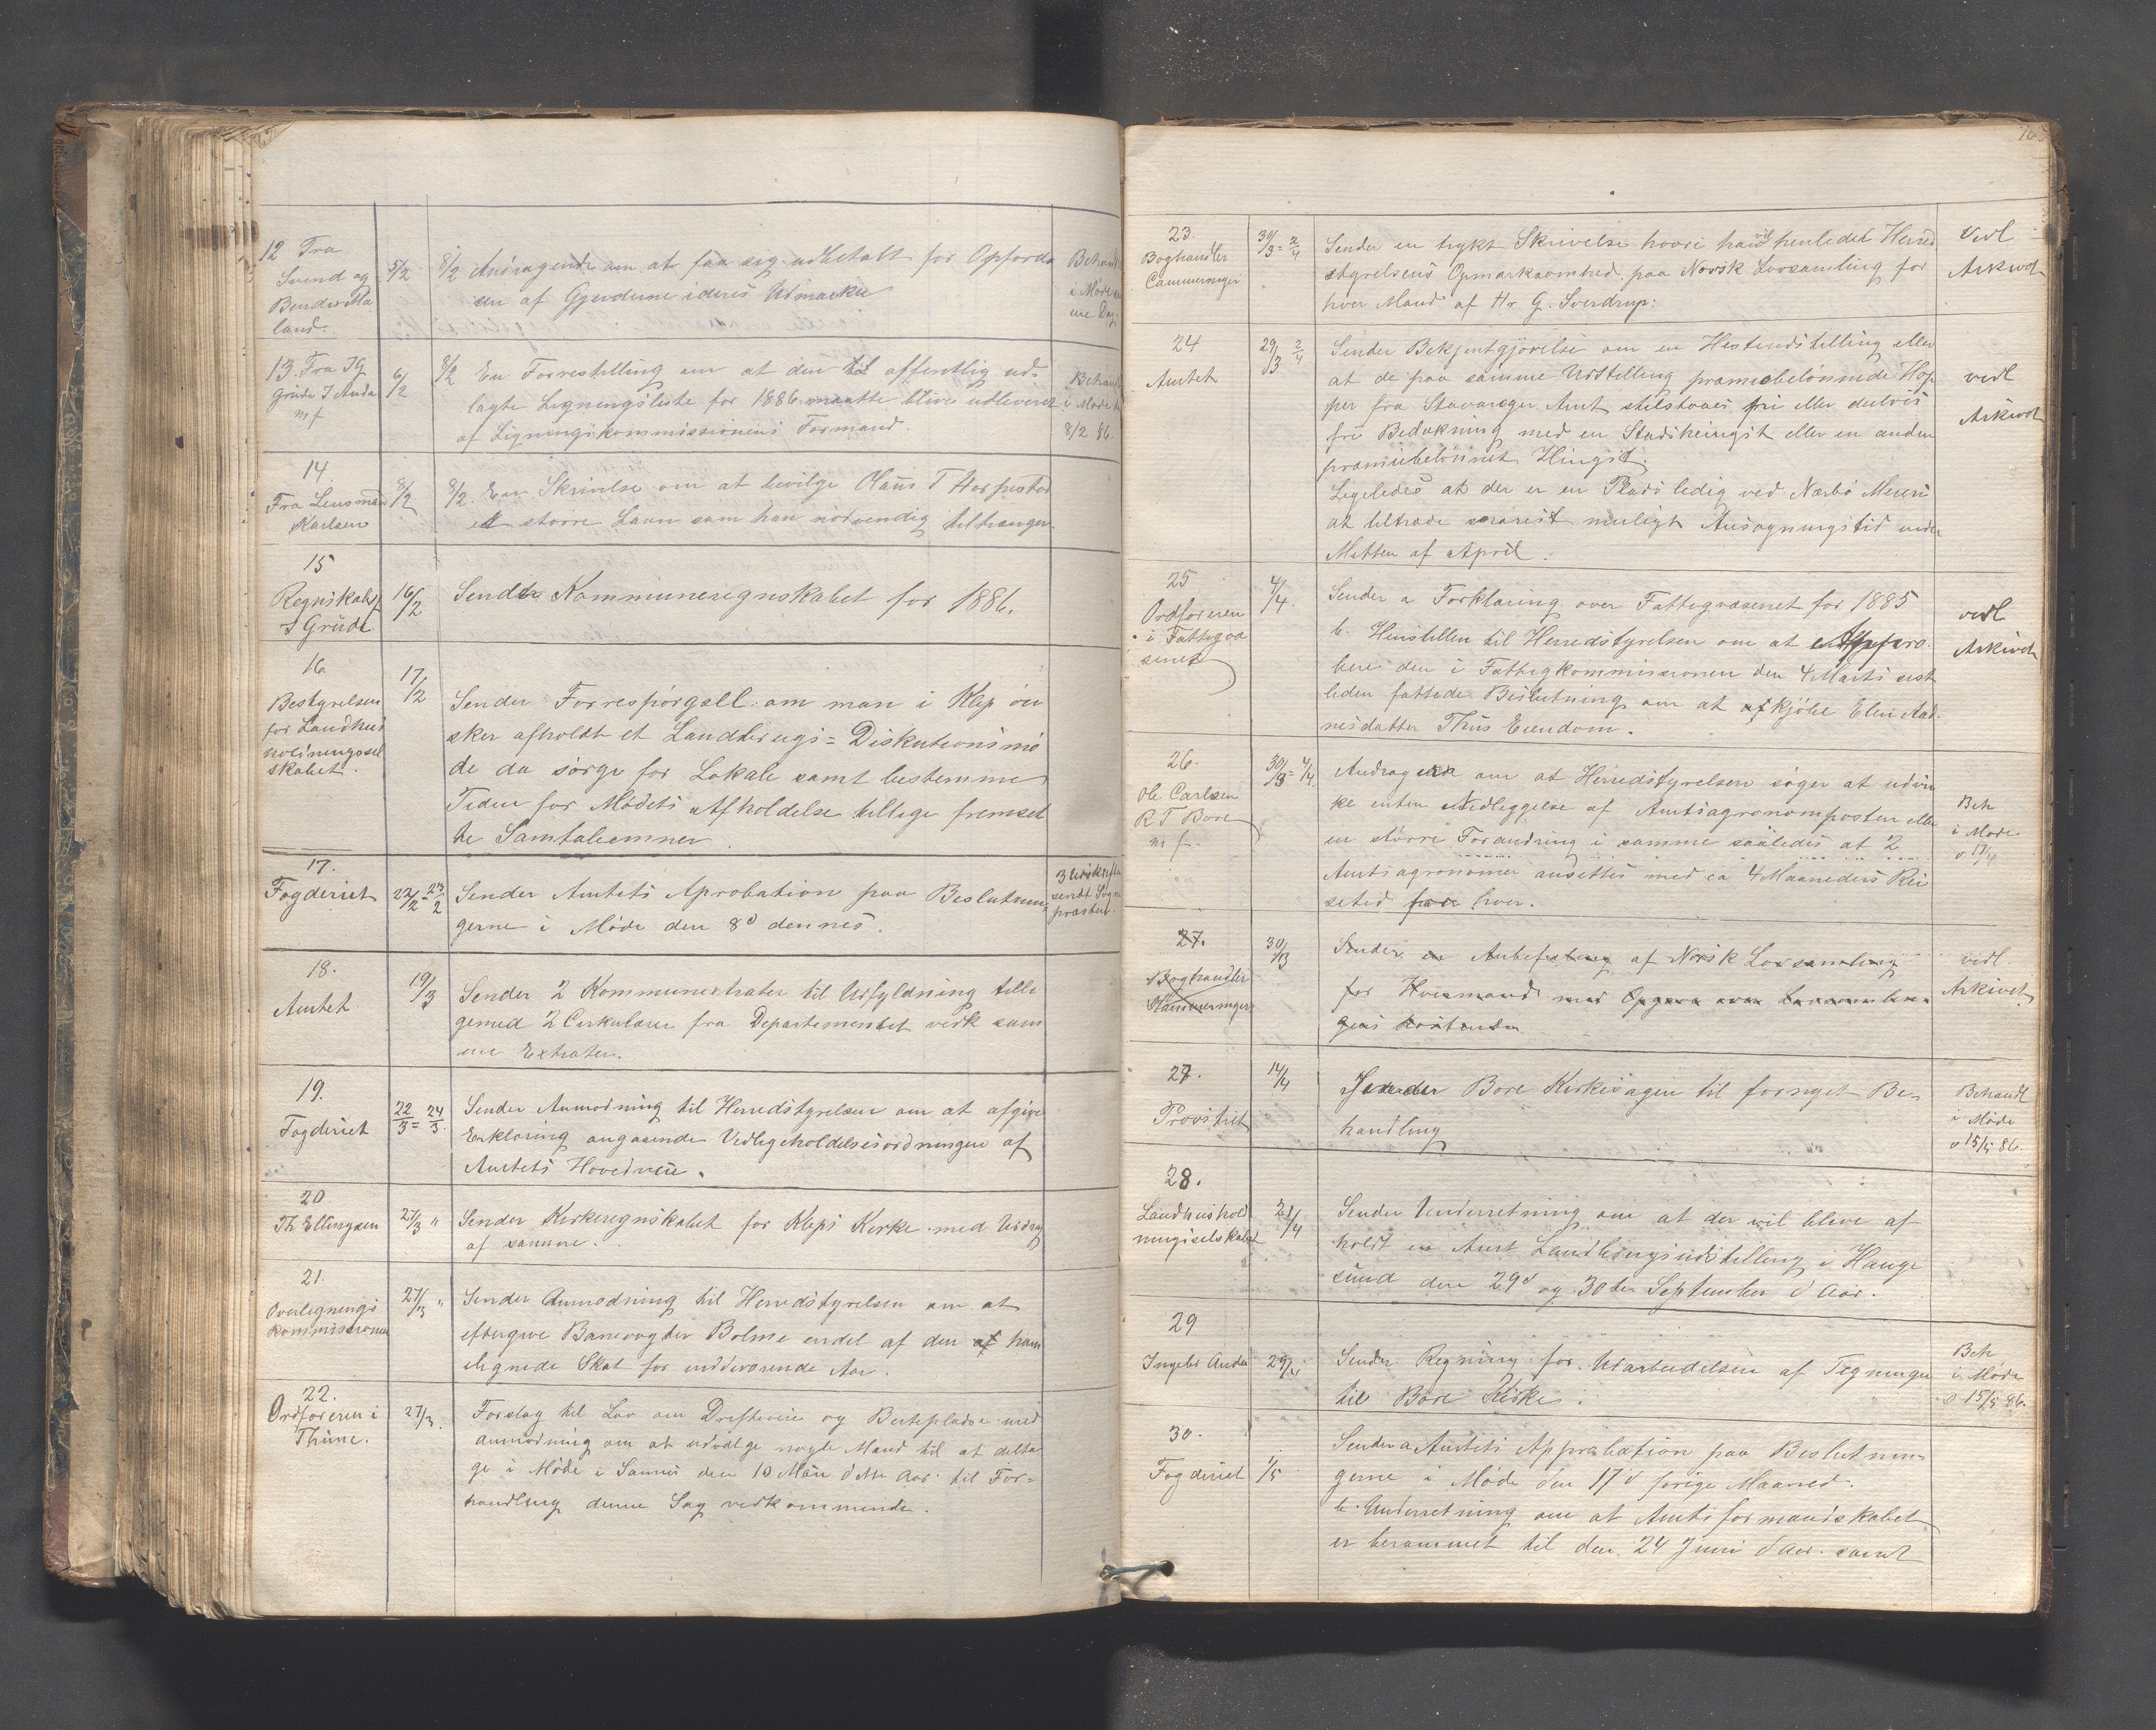 12 Fra
Svend og
Bender Ma
land.
5/2
8/2 Andragende om at faa sig udbetalt for Opførds
len af Gjerderne i deres Udmarker
Behandl
i Møde
me Dag
13. Fra JG
Grude J Anda
m f
6/2
8/2 En Forrestelling om at den til offentlig ud-
lagte Ligningsliste for 1886 maatte blive udleveret
af Ligningskommissionens Formand.
Behandl
i Møde
8/2 86.
14
Fra Lensmand
Karlsen
8/2
8/2. En Skrivelse om at bevilge Claus T Horpestad
et større Laan som han nødvendig tiltrænger.
15
Regnskabsf
J Grude
16/2
Sender Kommuneregnskabet for 1886.
16.
Bestyrelsen
for Landhus
holdningssel
skabet.
17/2
Sender Forrespørgsell om man i Klep øn
sker afholdt et Landbrugs= Diskutionsmø
de da sørge for Lokale samt bestemme
Tiden for Mødets Afholdelse tillige fremset
te Samtaleemner.
17.
Fogderiet
22/2 = 23/2
Sender Amtets Aprobation paa Beslutnin-
gerne i Møde den 8d dennes.
3 Udskrifter
sendt Sogne
præsten.
18.
Amtet
19/3
Sender 2 Kommunextrater til Udfyldning tilli
gemed 2 Cirkulærer fra Departementet vedk sam
me Extrater.
19.
Fogderiet
22/3 = 24/3.
Sender Anmodning til Herredstyrelsen om at afgive
Erklæring angaaende Vedligeholdelsesordningen af
Amtets Hovedveie.
20
Th Ellingsen
27/3 "
Sender Kirkeregnskabet for Kleps Kirke med Uddrag
af samme.
21.
Overlignings
kommissionen
27/3 "
Sender Anmodning til Herredstyrelsen om at
eftergive Banevogter Bolme endel af den af ham
ilignede Skat for indeværende Aar.
22.
Ordføreren i
Thime.
27/3.
Forslag til Lov om Drifteveie og Beitepladse med
anmodning om at udvælge nogle Mænd til at delta
ge i Møde i Sannes den 10 Mai dette Aar til For=
handling denne Sag vedkommende.
23.
Boghandler
Cammermeyer
30/3 = 2/4
Sender en trykt Skrivelse hvore han vil henledet Herred
styrelsens Opmærksomhed paa Norsk Lovsamling for
hver Mand af Hr. G. Sverdrup:
Vedl
Arkivet
24
Amtet
29/3 2/4
Sender Bekjentgjørelse om en Hesteudstilling eller
at de paa samme Udstilling præmiebelønnede Hop
per fra Stavanger Amt stilstaaes fri eller delvis
fri Bedækning med en Stadshingst eller en anden
præmiebelønnet Hingst.
Ligeledes at der er en Plads ledig ved Nærbø Meieri
at tiltræde snarest muligt Ansøgningstid inden
Midten af April.
vedl
Arkivet
25
Ordføreren
i Fattigvæ
senet
4/4.
Sender a Forklaring over Fattigvæsenet for 1885
b. Henstillen til Herredstyrelsen om at Appro
bere den i Fattigkommissionen den 4 Marts sist
leden fattede Beslutning om at afkjøbe Elen Aad.
nesdatter Thus Eiendom.
vedl
Arkivet
26.
Ole Carlsen
R T Bore
m f.
30/3 = 4/4.
Andragende om at Herredstyrelsen søger at udvir
ke enten Nedleggelse af Amtsagronomposten eller
en større Forandring i samme saaledes at 2
Amtsagronomer ansettes med ca 4 Maaneders Rei
setid for hver.
Beh
i Møde
d 17/4
27.
Boghandler
Kammermeyer
30/3
Sender en Anbefaling af Norsk Lovsamling
for Hvermand med Opgave over Lovsamlin-
gens Kostende
vedl
Arkivet
27.
Provstiet
14/4
Sender Bore Kirkesagen til fornyet Be-
handling
Behandl
i Møde
d 15/5 86.
28.
Landhushold
ningsselskabet
21/4
Sender Underretning om at der vil blive af
holdt en Amt Landbrugsudstilling i Hauge
sund den 29d og 30te September d Aar.
29
Ingebr Anda
29/4
Sender Regning for Udarbeidelsen af Tegninger
til Bore Kirke.
Beh
i Møde
d 15/5 86.
30.
Fogderiet
1/5
Sender a Amtets Approbation paa Beslutnin-
gerne i Møde den 17d forige Maaned.
b. Underretning om at Amtsformandskabet
er berammet til den 24 Juni d Aar. samt